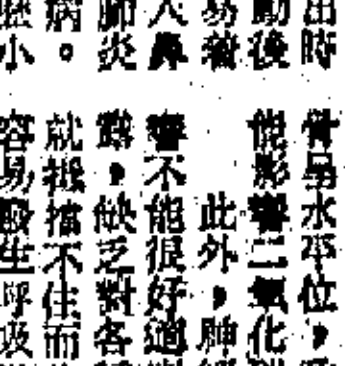 出時
動後
易
人鼻
肺炎
病。
小
水平位，
能影響二氧化
此外，肺
響不能很好適
，缺乏對各
就抵擋不住而
容易發生呼吸